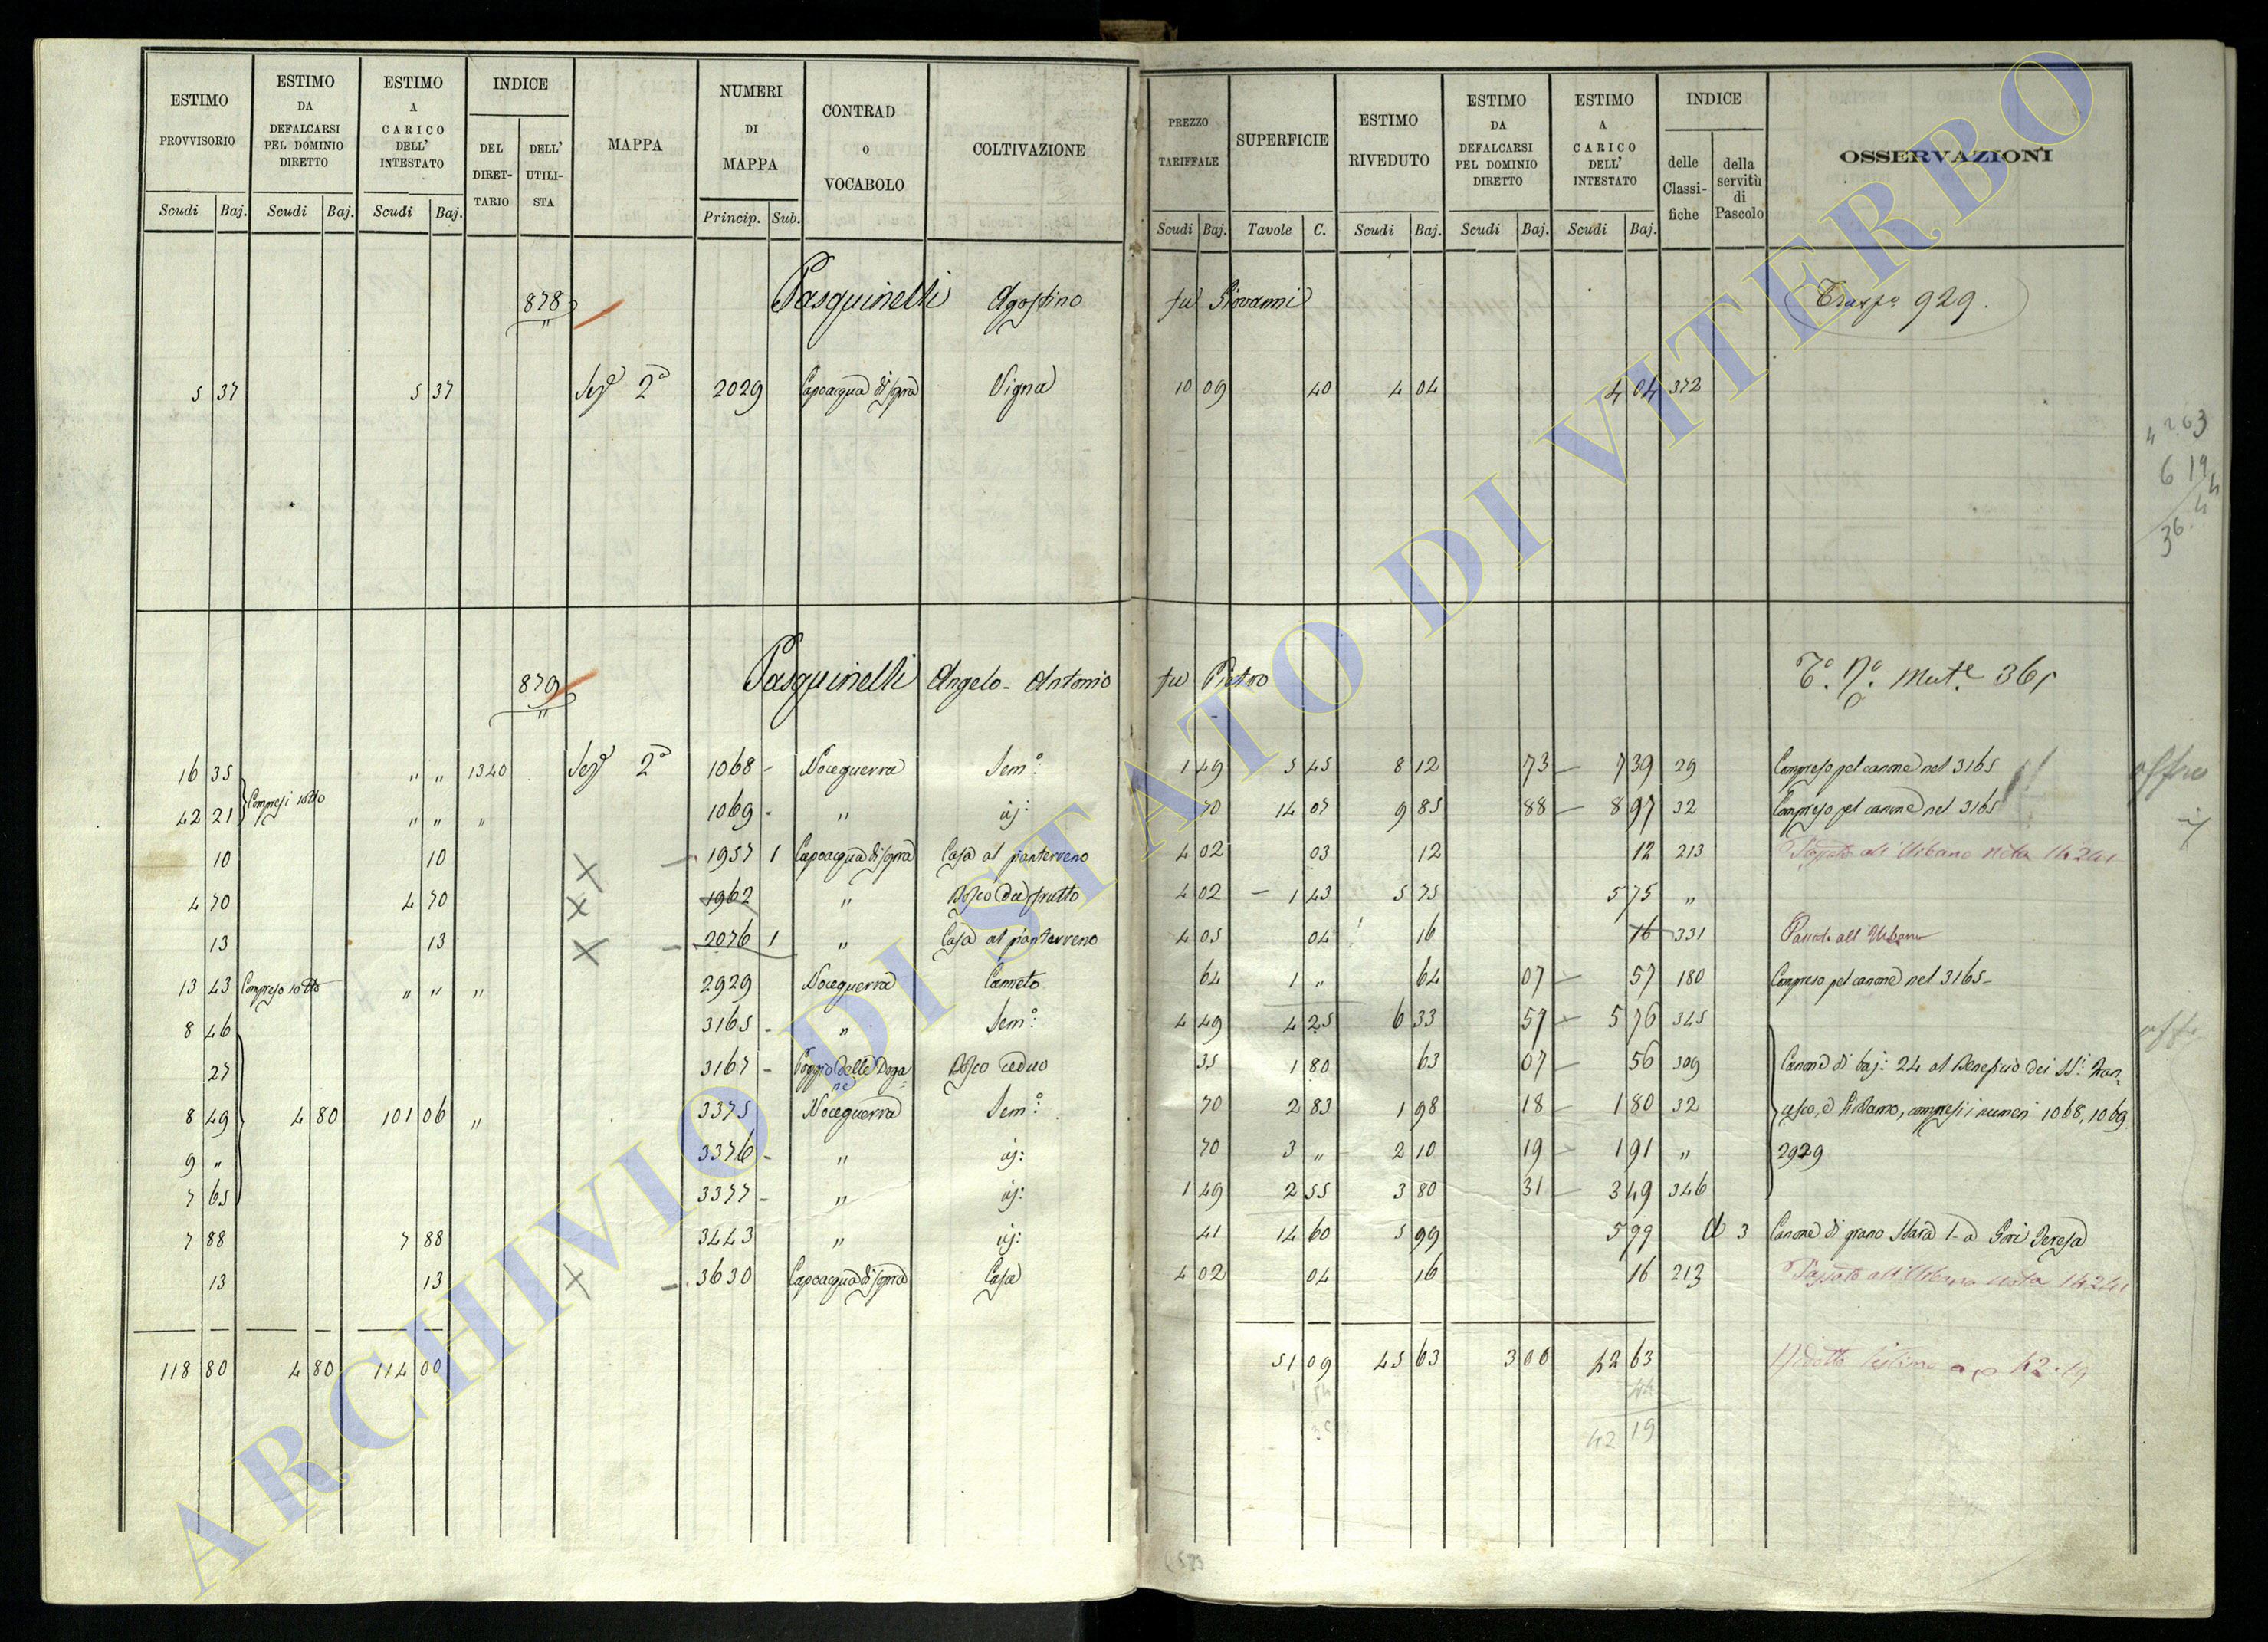 ESTIMO PROVVISORIO | ESTIMO DA DEFALCARSI PEL DOMINIO DIRETTO | ESTIMO A CARICO DELL' INTESTATO | INDICE DEL DIRETTARIO | DELL' UTILISTA | MAPPA | NUMERI DI MAPPA | CONTRAD O VOCABOLO | COLTIVAZIONE | PREZZO TARIFFALE | SUPERFICIE | ESTIMO RIVEDUTO | ESTIMO DA DEFALCARSI PEL DOMINIO DIRETTO | ESTIMO A CARICO DELL' INTESTATO | INDICE delle Classifiche | della servitù di Pascolo | OSSERVAZIONI
Scudi Baj. | Scudi Baj. | Scudi Baj. | Princip. Sub. | Scudi Baj. | Tavole C. | Scudi Baj. | Scudi Baj. | Scudi Baj.
878 Pasquinelli Agostino fu Giovanni 929.
5 37 | 5 37 | Sez.e 2a | 2029 | Capoacqua di sopra | Vigna | 10 09 | 40 | 4 04 | 4 04 | 372
879 Pasquinelli Angelo-Antonio fu Pietro Mut.e 365
16 35 | Compresi sotto | " " | 1340 | Sez.e 2a | 1068 | Noceguerra | Sem.o | 1 49 | 5 45 | 8 12 | 73 | 7 39 | 29 | Compreso pel canone nel 3165
42 21 | " " | " | 1069 | " | id: | 70 | 14 07 | 9 85 | 88 | 8 97 | 32 | Compreso pel canone nel 3165
10 | 10 | 1957 1 | Capoacqua di sopra | Casa al pianterreno | 4 02 | 03 | 12 | 12 | 213 | Passato all' Urbano nota
4 70 | 4 70 | 1962 | " | Bosco da frutto | 4 02 | 1 43 | 5 75 | 5 75 | "
13 | 13 | 2076 1 | " | Casa al pianterreno | 4 05 | 04 | 16 | 16 | 331 | Passato all Urbano
13 43 | Compreso sotto | " " | " | 2929 | Noceguerra | Canneto | 64 | 1 " | 64 | 07 | 57 | 180 | Compreso pel canone nel 3165
8 46 | 3165 | " | Sem.o | 4 49 | 4 25 | 6 33 | 57 | 5 76 | 345
27 | 3167 | Poggio delle Dogane | Bosco ceduo | 35 | 1 80 | 63 | 07 | 56 | 309 | Canone di baj: 24 al Benefizio dei SS.i Fran-
8 49 | 4 80 | 101 06 | " | 3375 | Noceguerra | Sem.o | 70 | 2 83 | 1 98 | 18 | 1 80 | 32 | cesco, e Girolamo, compresi i numeri 1068, 1069
9 " | 3376 | " | id: | 70 | 3 " | 2 10 | 19 | 1 91 | " | 2929
7 65 | 3377 | " | id: | 1 49 | 2 55 | 3 80 | 31 | 3 49 | 346
7 88 | 7 88 | 3443 | " | id: | 41 | 14 60 | 5 99 | 5 99 | 3 | Canone di grano Stara 1- a Gori Teresa
13 | 13 | 3630 | Capoacqua di sopra | Casa | 4 02 | 04 | 16 | 16 | 213 | Passato all' Urbano nota
118 80 | 4 80 | 114 00 | 51 09 | 45 63 | 3 00 | 42 63 | Ridotto l'estimo a 42.19
42 19
ARCHIVIO DI STATO DI VITERBO